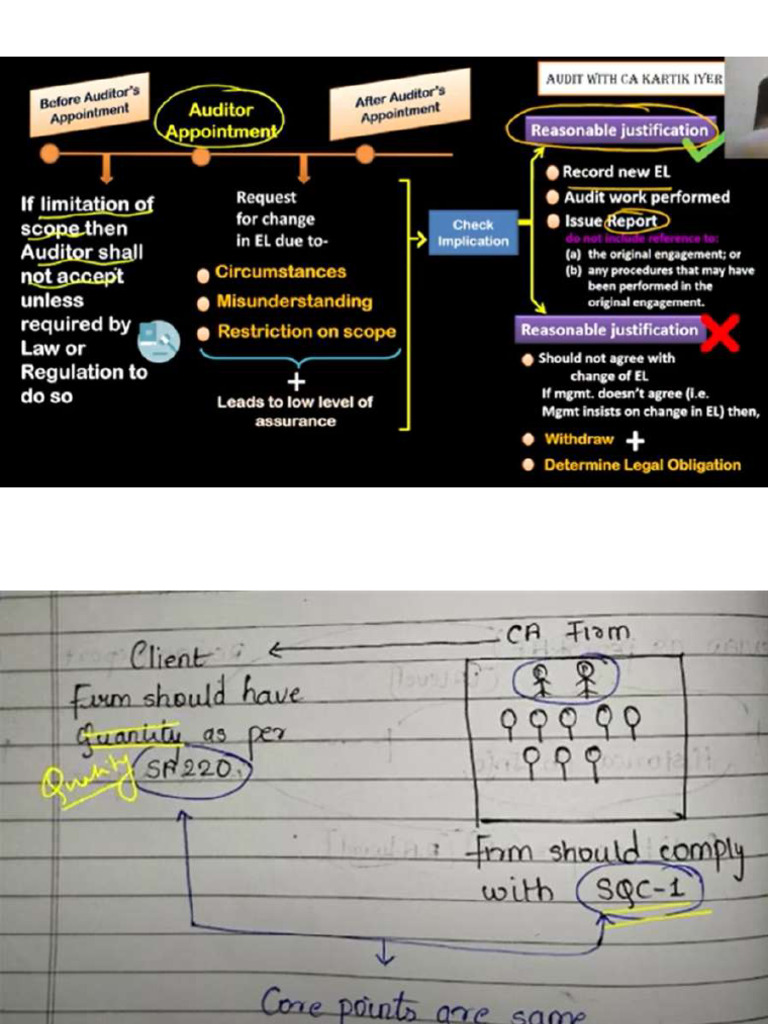 AUDIT WITH CA KARTIK IYER
Before Auditor's
Appointment
Auditor
Appointment
After Auditor's
Appointment
If limitation of
scope then
Auditor shall
not accept
unless
required by
Law or
Regulation to
do so
Request
for change
in EL due to-
Circumstances
Misunderstanding
Restriction on scope
+
Leads to low level of
assurance
Check
Implication
Reasonable justification
Record new EL
Audit work performed
Issue Report
do not include reference to:
(a) the original engagement; or
(b) any procedures that may have
been performed in the
original engagement.
Reasonable justification
Should not agree with
change of EL
If mgmt. doesn't agree (i.e.
Mgmt insists on change in EL) then,
Withdraw +
Determine Legal Obligation
CA Firm
Client
Firm should have
Quantity as per
Quality SA 220.
Firm should comply
with SQC-1
Core points are same